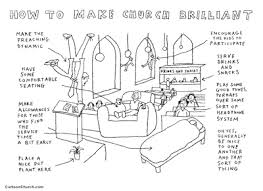 HOW TO MAKE CHURCH BRILLIANT
MAKE THE
PREACHING
DYNAMIC
HAVE
SOME
COMFORTABLE
SEATING
MAKE
ALLOWANCES
FOR THOSE
WHO FIND
THE
SERVICE
TIME
A BIT EARLY
PLACE A
NICE POT
PLANT
HERE
DRINKS AND SNACKS
ENCOURAGE
THE KIDS TO
PARTICIPATE
SERVE
DRINKS
AND
SNACKS
PLAY SOME
GOOD TUNES,
PERHAPS
OVER SOME
SORT OF
HEADPHONE
SYSTEM
OH YES,
GENERALLY
BE NICE
TO ONE
ANOTHER
AND THAT
SORT OF
THING
CartoonChurch.com